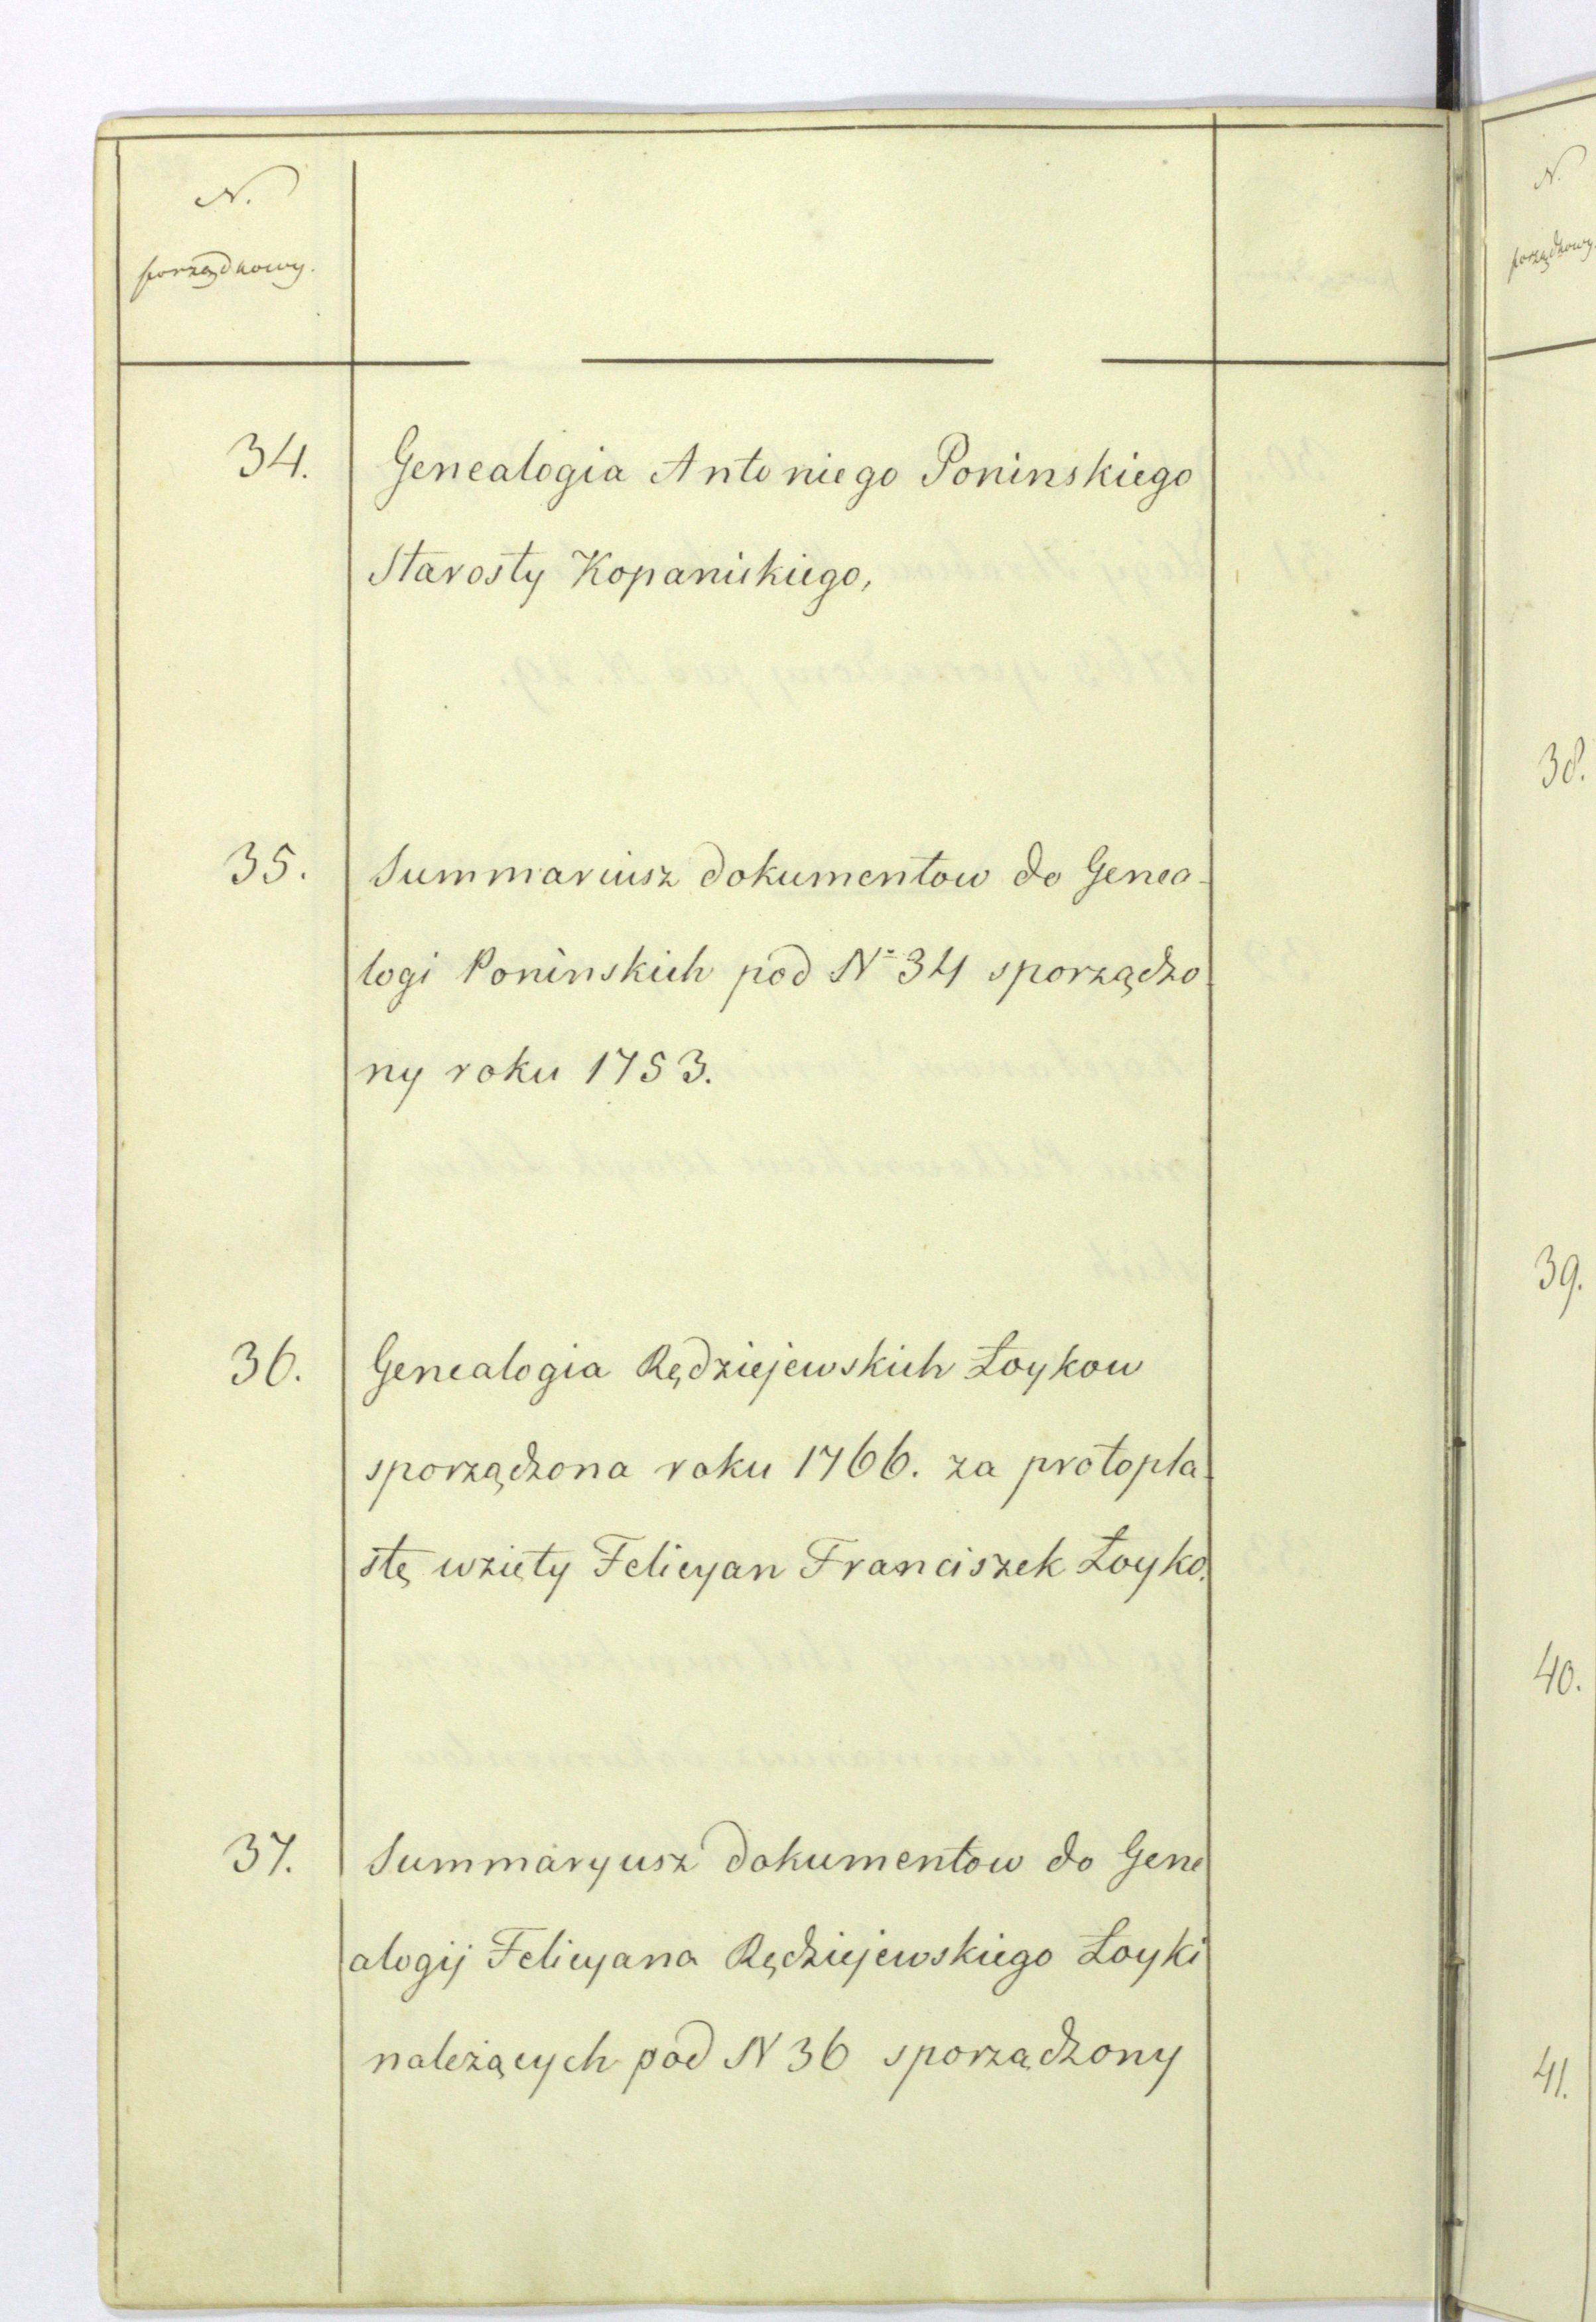 N.
porządkowy.
34. Genealogia Antoniego Poninskiego
Starosty Kopanickiego,
35. Summariusz dokumentow do Genea-
logi Poninskich pod N 34 sporządzo-
ny roku 1753.
36. Genealogia Rędziejewskich Łoykow
sporządzona roku 1766. za protopla-
stę wzięty Felicyan Franciszek Łoyko.
37. Summaryusz dokumentow do Gene
alogij Felicyana Rędziejewskiego Łoyki
należących pod N 36 sporządzony
N.
porządkowy.
38.
39.
40.
41.